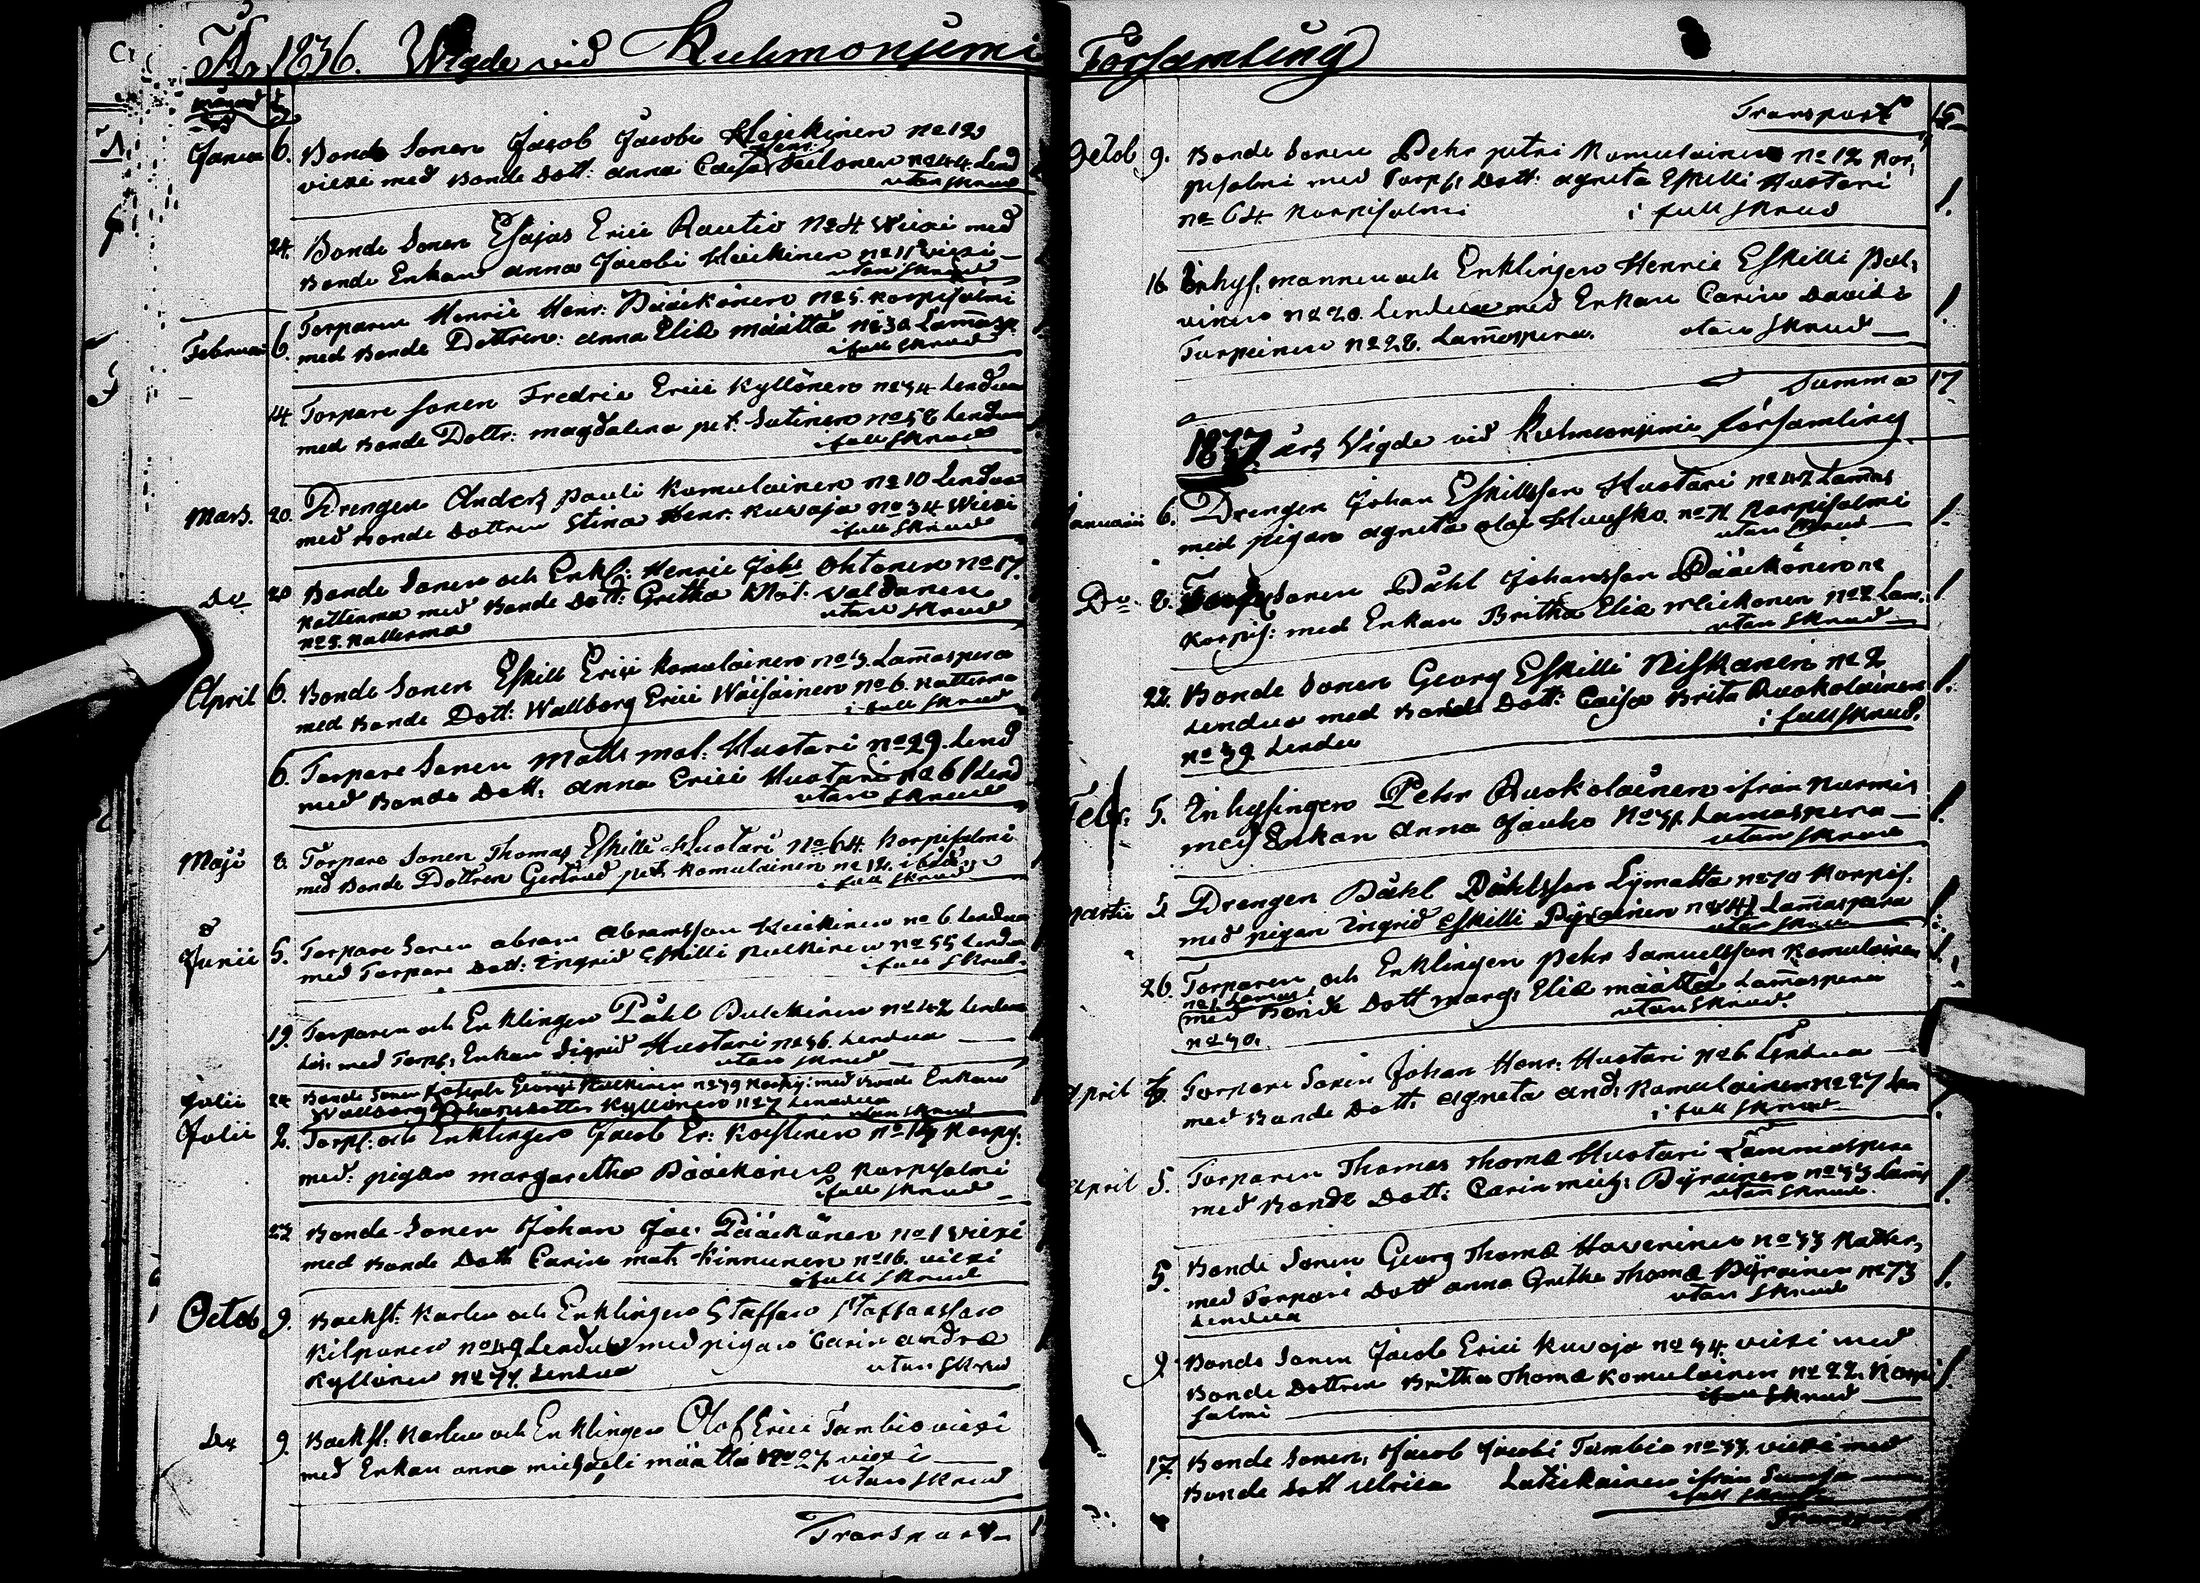 År 1836. Wigde vid Kuhmoniemi Församling
månad
Januar 6. Bonde Sonen Jacob Jacobi Heickinen No 12
Henr:
viexi med Bonde Dott: Anna Caisa Seilonen No 44. Lend
utan skrud
24. Bonde Sonen Esajas Erici Rautio No 4 Wiexi med
Bonde Enkan Anna Jacobi Heickinen No 11 viexi
utan skrud
Februar 6. Torparen Henric Henr: Pääckönen No 5. Korpisalmi
med Bonde Dottren: Anna Eliæ Määttä No 30 Lam̄asp.
i full skrud
14. Torpare Sonen Fredric Erici Kyllönen No 34 Lendua
med Bonde Dottr: Magdalena Pet: Sutinen No 58 Lendua
i full skrud
Mars. 20. Drengen Anders Pauli Komulainen No 10 Lendua
med Bonde Dottren Stina Henr: Kuvaja No 34 Wiexi
i full skrud
Do 20 Bonde Sonen och Enkl: Henric Joh: Ohtonen No 17.
Katterma med Bonde Dott: Gretha Mat: Valdanen
No 2. Katterma utan skrud
April 6. Bonde Sonen Eskill Erici Komulainen No 3. Lam̄aspera
med Bonde Dott: Wallborg Erici Wäisäinen No 6. Katterma
i full skrud
6. Torpare Sonen Matts Mat: Huotari No 29. Lend
med Bonde Dott: Anna Erici Huotari No 61 Lend
utan skrud
Maji 8. Torpare Sonen Thomas Eskilli Huotari No 64. Korpisalmi
med Bonde Dottren Gertrud Pet: Komulainen No 12.
i full skrud
Junii 5. Torpare Sonen Abram Abramsson Heickinen No 6. Lendua
med Torpare Dott: Ingrid Eskilli Pulkinen No 55 Lendua
i full skrud
19. Torparen och Enklingen Påhl Pulckinen No 42 Lendua
med Torp: Enkan Sigrid Huotari No 36. Lendua
utan skrud
Julii 24 Bonde Sonen Joseph Georgi No 39 Korpi: med Bonde Enkan
Wallborg Johansdotter Kyllönen No 7 Lendua
utan skrud
Julii 2. Torp: och Enklingen Jacob Er: No 14 Korpis:
med: pigan Margaretha Pääckönen Korpisalmi
i full skrud
27 Bonde Sonen Johan Jac: Pääckönen No 1 Wiexi
med Bonde Dott Carin Mat: Kinnunen No 16. viexi
i full skrud
Octob 9. Backst: Karlen och Enklingen Staffan Staffansson
Kilponen No 49 Lendua med pigan Carin Andræ
Kyllönen No 77. Lendua utan skrud
Do 9. Backst: Karlen och Enklingen Olof Erici Tambio viexi
med Enkan Anna Michaeli Määttä No 27 viexi
utan skrud
Transport
Transport 15
Octob 9. Bonde Sonen Pehr Petri Komulainen No 12 Kor,
pisalmi med Torp: Dott: Agneta Eskilli Huotari
No 64 Korpisalmi i full skrud 1.
16 Inhys. mannen och Enklingen Henric Eskilli Pol,
vinen No 20. Lendua med Enkan Carin Davidi
Turpeinen No 28. Lam̄aspera. utan skrud 1.
Summa 17
1837 års Wigde vid Kuhmoniemi församling
Januarii 6. Drengen Johan Eskillsson Huotari No 42 Lamas
med pigan Agneta Olai Huusko No 71 Korpisalmi 1.
utan skrud
Do 8. Sonen Påhl Johansson Pääckönen No
Korpis: med Enkan Britha Eliæ No 2 Lam. 1
utan skrud
22. Bonde Sonen Georg Eskilli Niskanen No 2
Lendua med Bonde Dott: Caisa Brita Ruokolainen 1.
No 39 Lendua i full skrud.
Febr. 5. Inhysingen Pehr Ruokolainen ifrån Nurmis
med Enkan Anna Jauho No 31 Lamaspera 1.
utan skrud
Martii 5 Drengen Påhl Påhlsson Lÿmatta No 70 Korpis.
med pigan Ingrid Eskilli Pÿrainen No 41 Lam̄aspera 1.
utan skrud
26. Torparen och Enklingen Pehr Samuelsson Komulainen
No 1 Lamas. med Bonde Dott Marg: Eliæ Määttä Lam̄aspera 1.
No 30. utan skrud.
April 6. Torpare Sonen Johan Henr: Huotari No 6. Lendua
med Bonde Dott: Agneta And: Komulainen No 27 Len
i full skrud
April 5. Torparen Thomas Thomæ Huotari Lammaspera
med Bonde Dott: Carin Mich: Pÿrainen No 33 Lam̄s 1.
utan skrud
5. Bonde Sonen Georg Thomæ Haverinen No 33 Katter,
med Torpare Dott Anna Gretha Thomæ Pÿrainen No 73 1.
Lendua utan skrud
9 Bonde Sonen Jacob Erici Kuvaja No 34 viexi med
Bonde Dottren Britha Thomæ Komulainen No 22. Korpi 1.
salmi i full skrud
17. Bonde Sonen, Jacob Jacobi Tambio No 33. viexi med
Bonde Dott Ulrica Latickainen ifrån
i full skrud
Transport